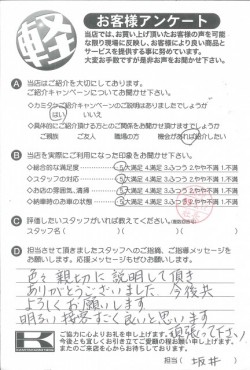 軽
お客様アンケート
当店では、お買い上げ頂いたお客様の声を可能
な限り現場に反映し、お客様により良い商品と
サービスを提供する事に努めています。
大変お手数ですが是非お声をお聞かせ下さい。
A 当店はご紹介を大切にしております。
ご紹介キャンペーンについてお聞かせ下さい。
はい いいえ
ご家族 ご友人 職場の方 機会があれば紹介したい
B 当店を実際にご利用になった印象をお聞かせ下さい。
◇総合的な満足度 5.大満足 4.満足 3.ふつう 2.やや不満 1.不満
◇スタッフの対応 5.大満足 4.満足 3.ふつう 2.やや不満 1.不満
◇お店の雰囲気、清掃 5.大満足 4.満足 3.ふつう 2.やや不満 1.不満
◇納車時のお車の状態 5.大満足 4.満足 3.ふつう 2.やや不満 1.不満
C 評価したいスタッフがいれば教えてください。
スタッフ名( )( )( )
D 担当させて頂きましたスタッフへのご指摘、ご指導メッセージを
お願いします。応援メッセージもぜひお願いします。
色々親切に説明して頂き
ありがとうございました 今後共
よろしくお願いします
明るい接客すごく良いと思います
頑張って下さい
ご協力に心よりお礼を申し上げます。
今後とも宜しくお引き立てご愛顧の程お願い申し上げます。
またのご来店を心からお待ちしております。
担当( 坂井 )